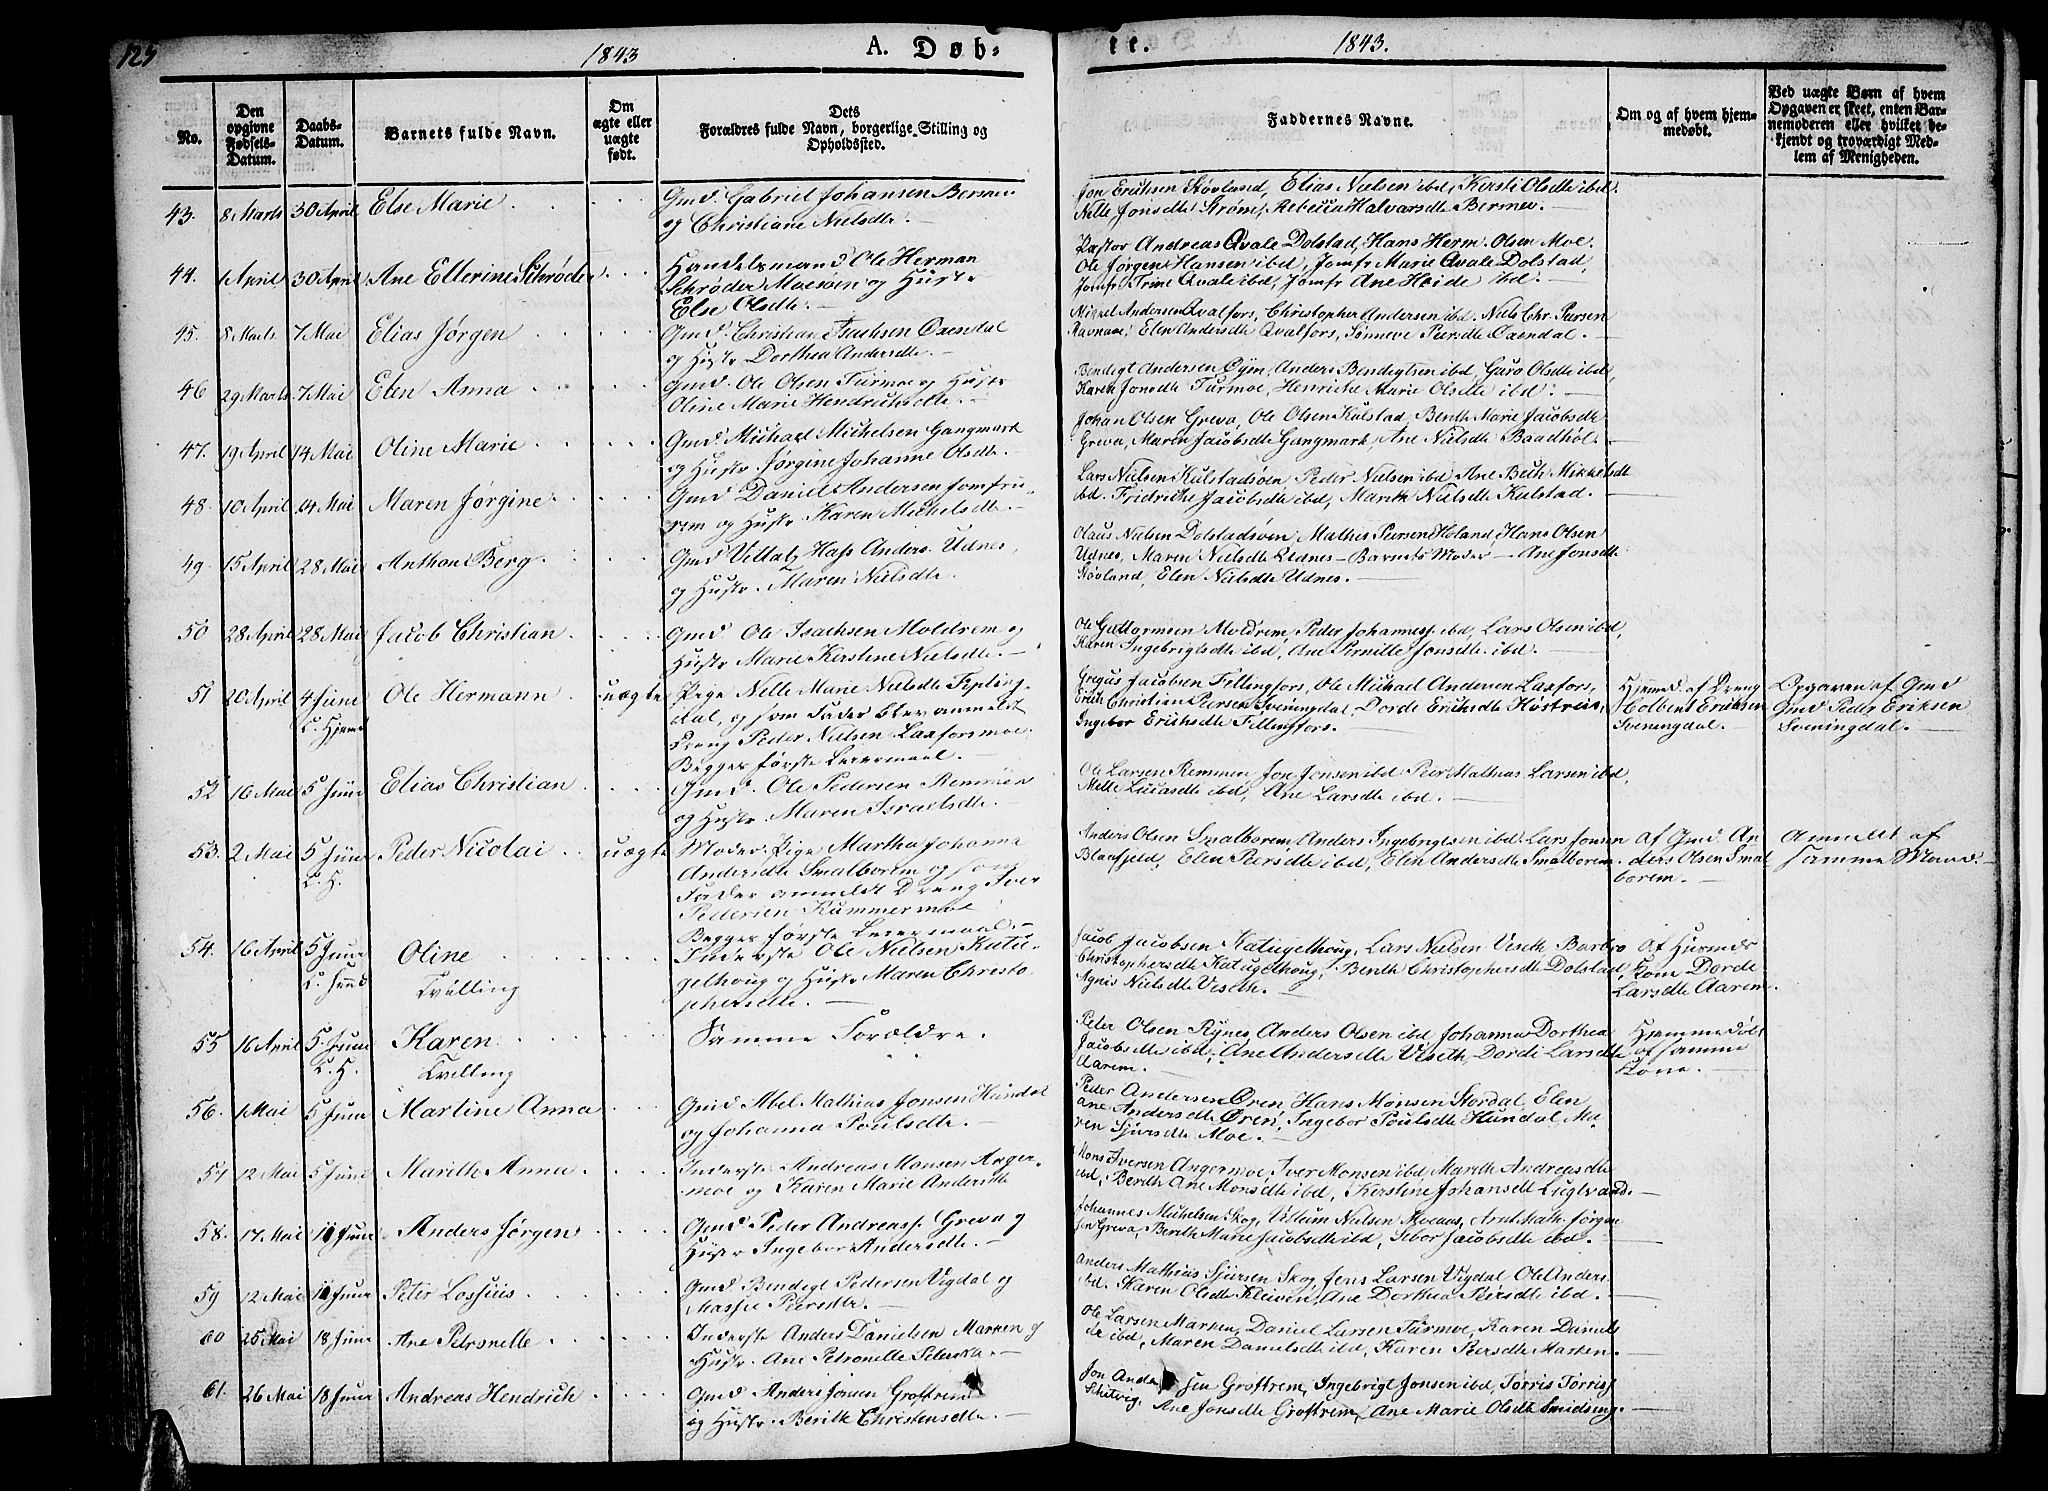 125
1843
A. Døb-
te.
1843.
No.
Den opgivne Fødsels-Datum.
Daabs-Datum.
Barnets fulde Navn.
Om ægte eller uægte født.
Dets Forældres fulde Navn, borgerlige Stilling og Opholdssted.
Faddernes Navne.
Om og af hvem hjemmedøbt.
Ved uægte Børn af hvem Opgaven er skeet, enten Barnemoderen eller hvilket bekjendt og troværdigt Medlem af Menigheden.
43. 8 Marts 30 April Else Marie
Gmd. Gabriel Johansen Bersnev
og Christiane Nielsdtr.
Jon Erichsen Støvland, Elias Nielsen ibd, Kersti Olsdtr ibd
Nelle Jonsdtr Strøm, Rebecca Halvarsdtr Bersnev.
44. 1 April 30 April Ane Ellerine Schrøder
Handelsmand Ole Herman
Schrøder Mosøen og Hustr
Else Olsdtr.
Pastor Andreas Qvale Dolstad, Hans Herm. Olsen Moe.
Ole Jørgen Hansen ibd, Jomfr Marie Qvale Dolstad,
Jomfr Trine Qvale ibd, Jomfr Ane Heide ibd.
45. 8 Marts 7 Mai Elias Jørgen
Gmd. Christian Isachsen Oxendal
og Hustr Dorthea Andersdtr.
Andersen Qvalfors, Christopher Andersen ibd. Niels Chr. Persen
Elen Andersdtr Qvalfors, Sønneve Peersdtr Oxendal.
46 29 Marts 7 Mai Elen Anna
Gmd. Ole Olsen Turmoe og Hustr
Oline Marie Hendrichsdtr.
Bendigt Andersen Øym, Anders Bendigtsen ibd, Guro Olsdtr ibd,
Karen Jonsdtr Turmoe, Henriche Marie Olsdtr ibd.
47. 19 April 14 Mai Oline Marie
Gmd Michael Michelsen Gangmark
og Hustr. Jørgine Johanne Olsdtr.
Johan Olsen Greva, Ole Olsen Kulstad, Berith Marie Jacobsdtr
Greva, Maren Jacobsdtr Gangmark, Ane Nielsdtr Baadhol.
48. 10 April 14 Mai Maren Jørgine
Gmd Daniel Andersen Jomfru-
rem og Hustr. Karen Michelsdtr.
Lars Nielsen Kulstadsøen, Peder Nielsen ibd, Ane Beth Mikkelsdtr
ibd. Fridriche Jacobsdtr ibd, Marith Nielsdtr Kulstad.
49. 15 April 28 Mai Anthon Berg
Gmd Vittalz Hass Anders. Udnes,
og Hustr. Maren Nielsdtr.
Olaus Nielsen Dolstadsøen, Mathis Persen Holand, Hans Olsen
Udnes, Maren Nielsdtr Udnes - Barnets Moder - Ane Jonsdtr
Støvland, Elen Nielsdtr Udnes.
50 28 April 28 Mai Jacob Christian
Gmd. Ole Isachsen Moldrem og
Hustr Marie Kerstine Nielsdtr.
Ole Guttormsen Moldrem, Peder Johanness. ibd, Lars Olsen ibd,
Karen Ingebrigtsdtr ibd, Ane Pernille Jonsdtr. ibd.
51 20 April 4 Juni C. Hjemd Ole Hermann uægte
Pige Nelle Marie Nielsdtr Fipling-
dal, og som Fader blev anmeldt
Dreng Peder Nielsen Laxforsmoe.
Begges første Leiermaal.
Gregus Jacobsen Fellingfors, Ole Michael Andersen Laxfors,
Erich Christian Persen Sveningdal, Dorde Eriksdtr
Ingebor Eriksdtr Fellingfors.
Hjemd. af Dreng
Holbert Eriksen
Sveningdal.
Opgaven af Gmd
Gmd Peder Eriksen
Sveningdal.
52 16 Mai 5 Juni Elias Christian
Gmd. Ole Pedersen Remmen
og Hustr. Maren Israelsdtr.
Ole Larsen Remmen, Jon Jonsen ibd Peer Mathias Larsen ibd,
Mette Lucasdtr ibd, Ane Larsdtr ibd.
53. 2 Mai 5 Juni C. H. Peder Nicolai uægte
Moder: Pige Martha Johanna
Andersdtr Smalborem og som
Fader anmeldt Dreng Iver
Pedersen Kummermoe
Begges første Leiermaal.
Anders Olsen Smalborem, Anders Ingebrigtsen ibd. Lars Jonsen
Blaafjeld, Elen Persdtr ibd, Elen Andersdtr Smalborem.
Af Gmd. An-
ders Olsen Smal
borem.
Anmeldt af
samme Mand.
54. 16 April 5 Juni Oline
Tvilling
Inderste Ole Nielsen Katu-
gelhoug og Hustr Maren Christo-
phersdtr.
Jacob Jacobsen Katugelhoug, Lars Nielsen Veseth Barbro
Christophersdtr Katugelhoug, Berith Christophersdtr Dolstad,
Agnis Nielsdtr Veseth.
Kone Dorde
Larsdtr Aarem.
55 16 April 5 Juni C. H. Karen
Tvilling
Samme Forældre.
Peter Olsen Rynes, Anders Olsen ibd, Johanna Dorthea
Jacobsdtr ibd, Ane Andersdtr Veseth, Dordi Larsdtr
Aarem.
Hjemmedøbt
af samme
Kone.
56. 1 Mai 5 Juni Martine Anna
Gmd Abel Mathias Jonsen Hundal
og Johanna Poulsdtr.
Peder Andersen Ören, Hans Monsen Stordal, Elen
ane Andersdtr Ören, Ingebor Poulsdtr Hundal, Ma-
ren Sjursdtr Moe.
57 12 Mai 5 Juni Marith Anna
Inderste Andreas Monsen Anger-
moe og Karen Marie Andersdtr
Mons Iversen Angermoe, Iver Monsen ibd, Marith Andreasdtr
ibd, Berith Ane Monsdtr ibd, Kerstine Johansdtr Lugtvand.
58. 17 Mai 11 Juni Anders Jørgen
Gmd Peder Andreass. Greva og
Hustr Ingebor Andersdtr.
Johannes Michelsen Skog, Villum Nielsen Arnt Math. Jørgen
sen Greva, Berith Marie Jacobsdtr ibd, Sibor Jacobsdtr ibd.
59 12 Mai 11 Juni Peter Lossius
Gmd Bendigt Pedersen Vigdal og
Massie Persdtr.
Anders Mathias Sjursen Skog, Jens Larsen Vigdal, Ole Anders.
ibd. Karen Olsdtr Kleiven, Ane Dorthea Persdtr ibd.
60 25 Mai 18 Juni Ane Petronelle
Inderste Anders Danielsen Marken og
Hustr. Ane Petronelle Pedersdtr.
Ole Larsen Marken, Daniel Larsen Turmoe, Karen Daniels
dtr ibd, Maren Danielsdtr ibd, Karen Persdtr Marken.
61. 26 Mai 18 Juni Andreas Hendrich
Gmd Anders Jonsen Groftrem
og Hustr. Berith Christensdtr.
Jon Andersen Groftrem, Ingebrigt Jonsen ibd, Torris Torriss
Schitvig, Ane Jonsdtr Groftrem, Ane Marie Olsdtr Smidseng.